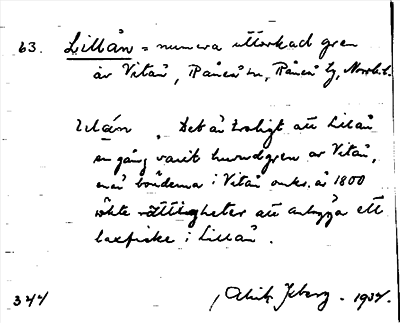 63. Lillån = numera uttorkad gren
av Vitån, Råneå sn, Råneå tg, Norrb. l.
Vitån. Det är troligt att Lillån
en gång varit huvudgren av Vitån,
när bönderna i Vitån omkr. år 1800
sökte rättigheter att anlägga ett
laxfiske i Lillån.
344 Isberg - 1934.